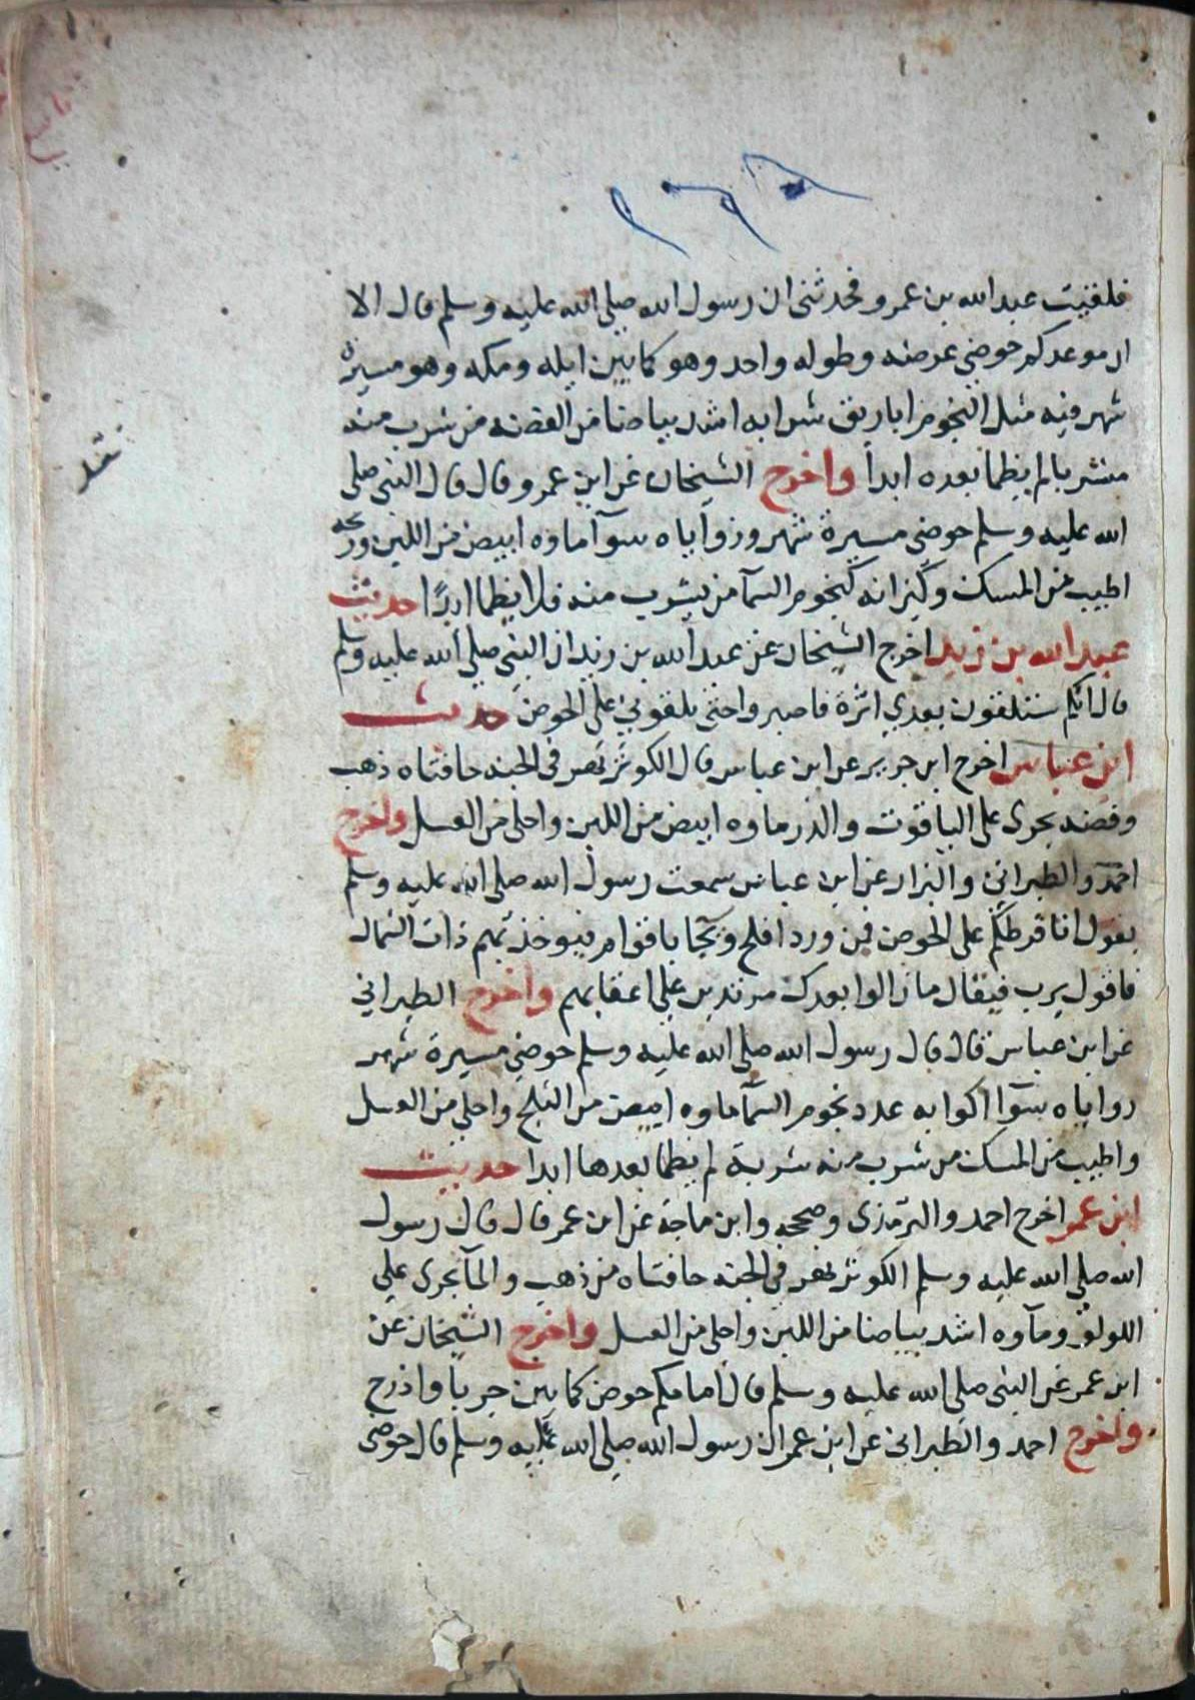 فلقيت عبد الله بن عمرو فحدثني ان رسول الله صلى الله عليه وسلم قال الا
ان موعدكم حوضي عرضه وطوله واحد وهو كما بين ايله ومكه وهو مسيرة
شهر فيه مثل النجوم اباريق شرابه اشد بياضا من الفضه من شرب منه
مشربا لم يظما بعده ابدا واخرج الشيخان عن ابن عمرو قال قال النبي صلى
الله عليه وسلم حوضي مسيرة شهر وزواياه سوآ ماوه ابيض من اللبن وريحه
اطيب من المسك وكيزانه كنجوم السمآ من يشرب منه فلا يظما ابدًا حديث
عبد الله بن زيد اخرج الشيخان عن عبد الله بن زيد ان النبي صلى الله عليه وسلم
قال انكم ستلقون بعدي اثرة فاصبروا حتى تلقوني على الحوض حديث
ابن عباس اخرج ابن جرير عن ابن عباس قال الكوثر نهر في الجنه حافتاه ذهب
وفضه يجرى على الياقوت والدر ماوه ابيض من اللبن واحلى من العسل واخرج
احمد والطبراني والبزار عن ابن عباس سمعت رسول الله صلى الله عليه وسلم
يقول انا فرطكم على الحوض فمن ورد افلح ويجا باقوام فيوخذ بهم ذات الشمال
فاقول يرب فيقال ما زالوا بعدك مرتدين على اعقابهم واخرج الطبراني
عن ابن عباس قال قال رسول الله صلى الله عليه وسلم حوضي مسيرة شهر
زواياه سوآ اكوابه عدد نجوم السمآ ماوه ابيض من الثلج واحلى من العسل
واطيب من المسك من شرب منه شربة لم يظما بعدها ابدا حديث
ابن عمر اخرج احمد والترمذى وصححه وابن ماجة عن ابن عمر قال قال رسول
الله صلى الله عليه وسلم الكوثر نهر في الجنه حافتاه من ذهب والمآ يجرى على
اللولو ومآوه اشد بياضا من اللبن واحلى من العسل واخرج الشيخان عن
ابن عمر عن النبي صلى الله عليه وسلم قال امامكم حوض كما بين جربا واذرح
واخرج احمد والطبراني عن ابن عمر ان رسول الله صلى الله عليه وسلم قال حوضي